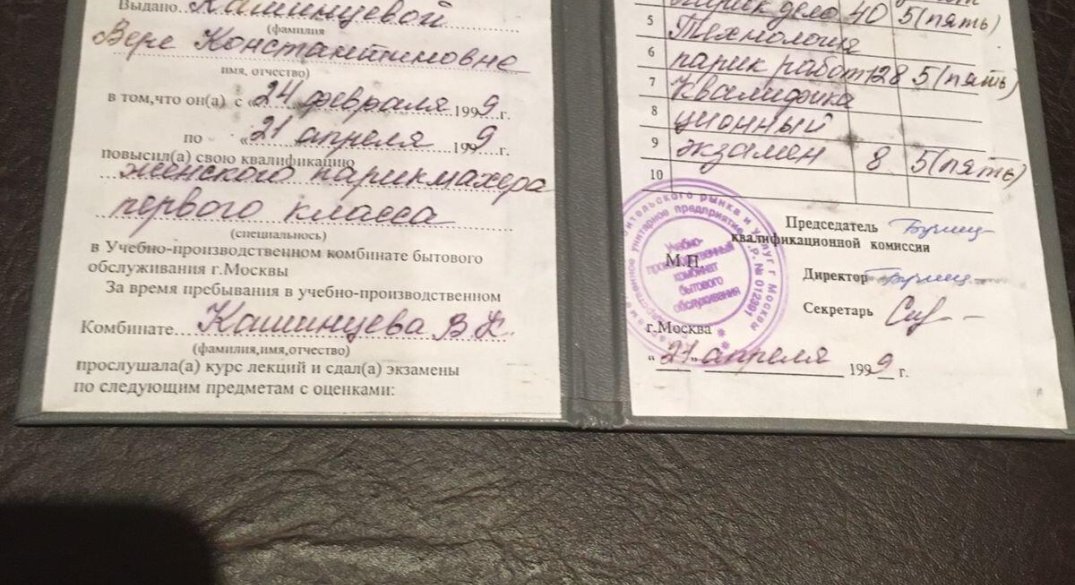 Выдано Кашинцевой
(фамилия
Вере Константиновне
имя, отчество)
в том,что он(а) с «24 февраля 1999г.
по «21 апреля 1999г.
повысил(а) свою квалификацию
женского парикмахера
первого класса
(специальнось)
в Учебно-производственном комбинате бытового
обслуживания г.Москвы
За время пребывания в учебно-производственном
Комбинате Кашинцева В.К.
(фамилия,имя,отчество)
прослушала(а) курс лекций и сдал(а) экзамены
по следующим предметам с оценками:
дело 40 5(пять)
5 Технология
6 парик работ 128 5(пять)
7 Квалифика
8 ционный
9 экзамен 8 5(пять)
10
Председатель
квалификационной комиссии
М.П.
Директор
Секретарь
г.Москва
"21" апреля 1999 г.
Учебно-
производственный
комбинат
бытового
обслуживания